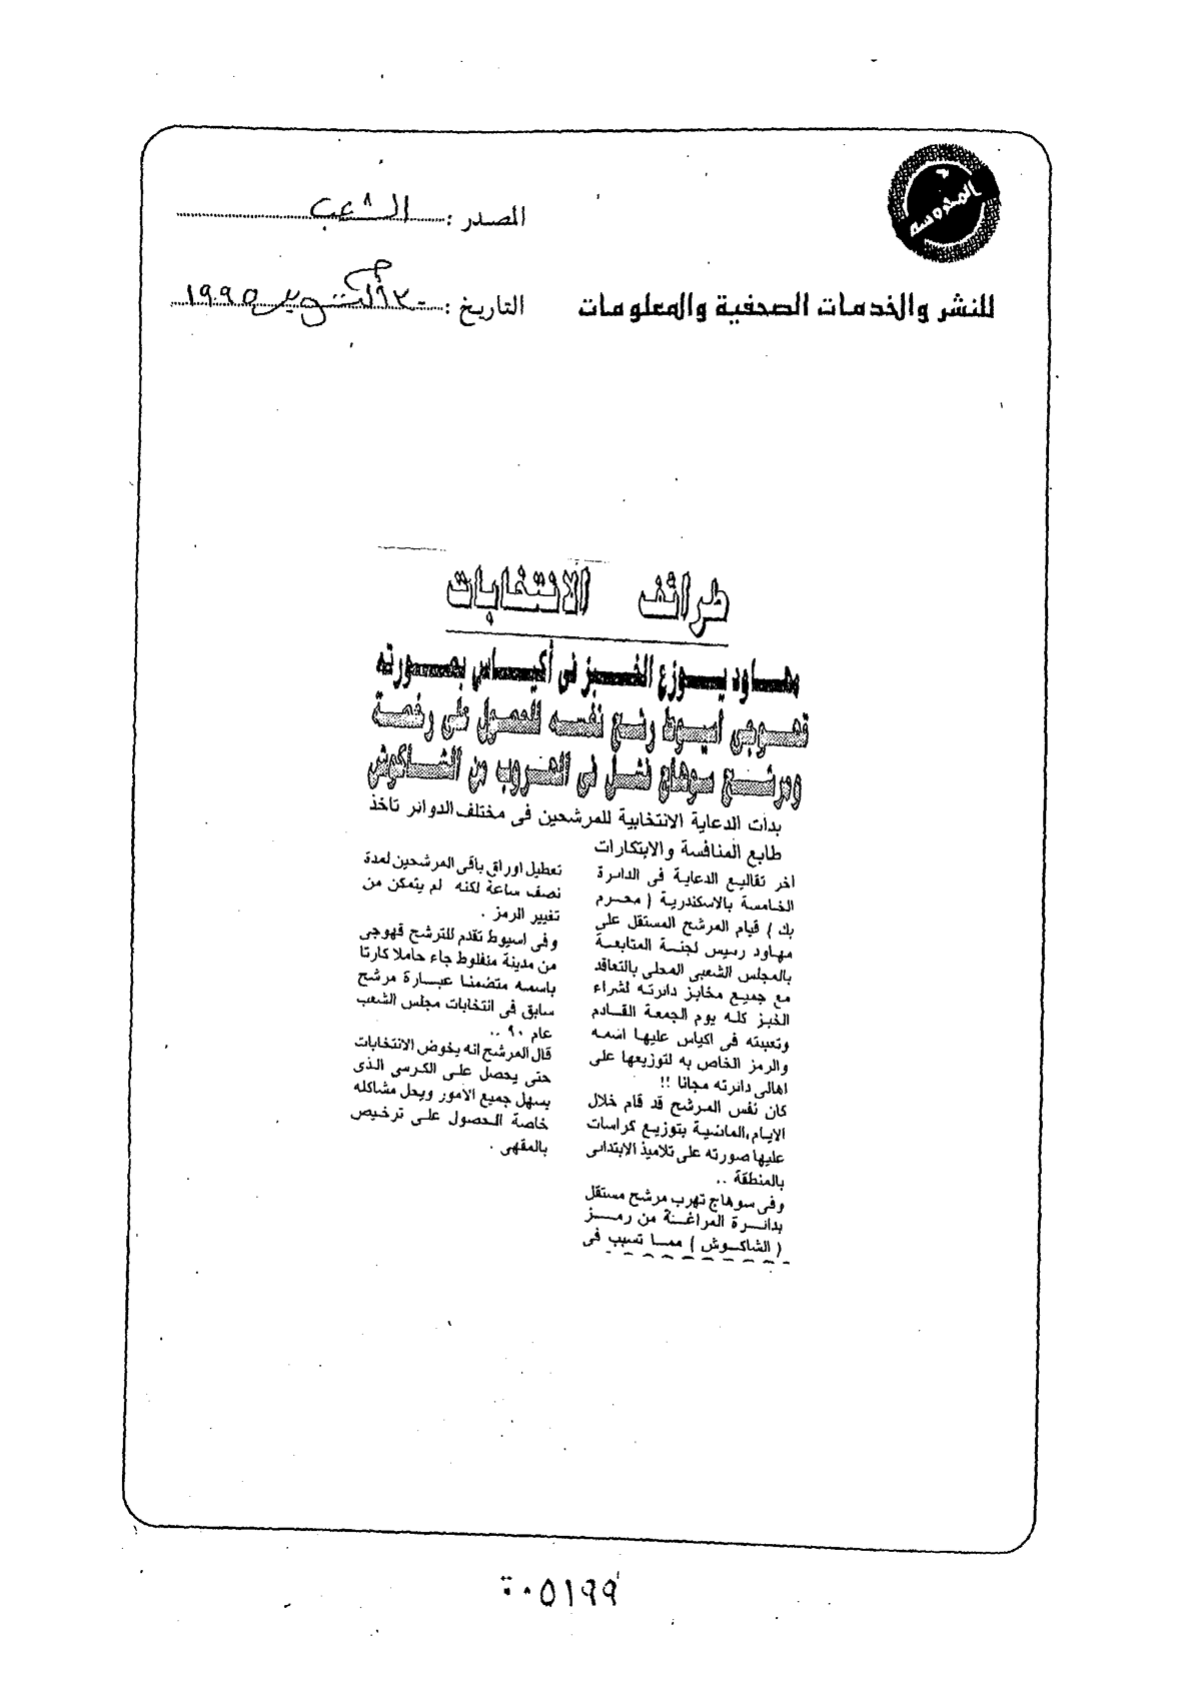 المدوسة
المصدر : الشعب
للنشر والخدمات الصحفية والمعلومات
التاريخ : أكتوبر ١٩٩٥
طرائف الانتخابات
مهاود يوزع الخبز فى أكياس بصورته
قهوجى أسيوط رشح نفسه للحصول على رخصة
ومرشح سوهاج فشل فى الهروب من الشاكوش
بدات الدعاية الانتخابية للمرشحين فى مختلف الدوائر تاخذ
طابع المنافسة والابتكارات
اخر تقاليع الدعاية فى الدائرة
الخامسة بالاسكندرية ( محرم
بك ) قيام المرشح المستقل على
مهاود رئيس لجنة المتابعة
بالمجلس الشعبى المحلى بالتعاقد
مع جميع مخابز دائرته لشراء
الخبز كله يوم الجمعة القادم
وتعبئته فى اكياس عليها اسمه
والرمز الخاص به لتوزيعها على
اهالى دائرته مجانا !!
كان نفس المرشح قد قام خلال
الايام الماضية بتوزيع كراسات
عليها صورته على تلاميذ الابتدائى
بالمنطقة ..
وفى سوهاج تهرب مرشح مستقل
بدائرة المراغة من رمز
( الشاكوش ) مما تسبب فى
تعطيل اوراق باقى المرشحين لمدة
نصف ساعة لكنه لم يتمكن من
تغيير الرمز .
وفى اسيوط تقدم للترشح قهوجى
من مدينة منفلوط جاء حاملا كارتا
باسمه متضمنا عبارة مرشح
سابق فى انتخابات مجلس الشعب
عام ٩٠ ..
قال المرشح انه يخوض الانتخابات
حتى يحصل على الكرسى الذى
يسهل جميع الأمور ويحل مشاكله
خاصة الحصول على ترخيص
بالمقهى .
٠٥١٩٩